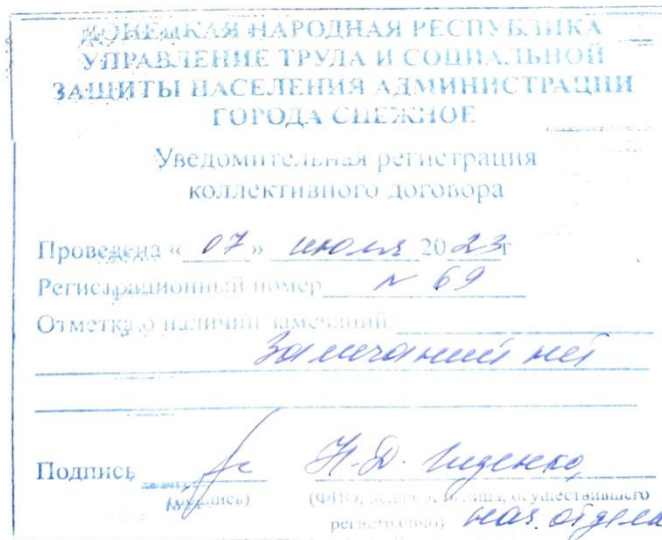 ДОНЕЦКАЯ НАРОДНАЯ РЕСПУБЛИКА
УПРАВЛЕНИЕ ТРУДА И СОЦИАЛЬНОЙ
ЗАЩИТЫ НАСЕЛЕНИЯ АДМИНИСТРАЦИИ
ГОРОДА СНЕЖНОЕ
Уведомительная регистрация
коллективного договора
Проведена « 07 » июля 2023г
Регистрационный номер № 69
Отметка о наличии замечаний
Замечаний нет
Подпись Н.Д.
(подпись) (ФИО, лица, осуществившего
регистрацию) нач. отдела